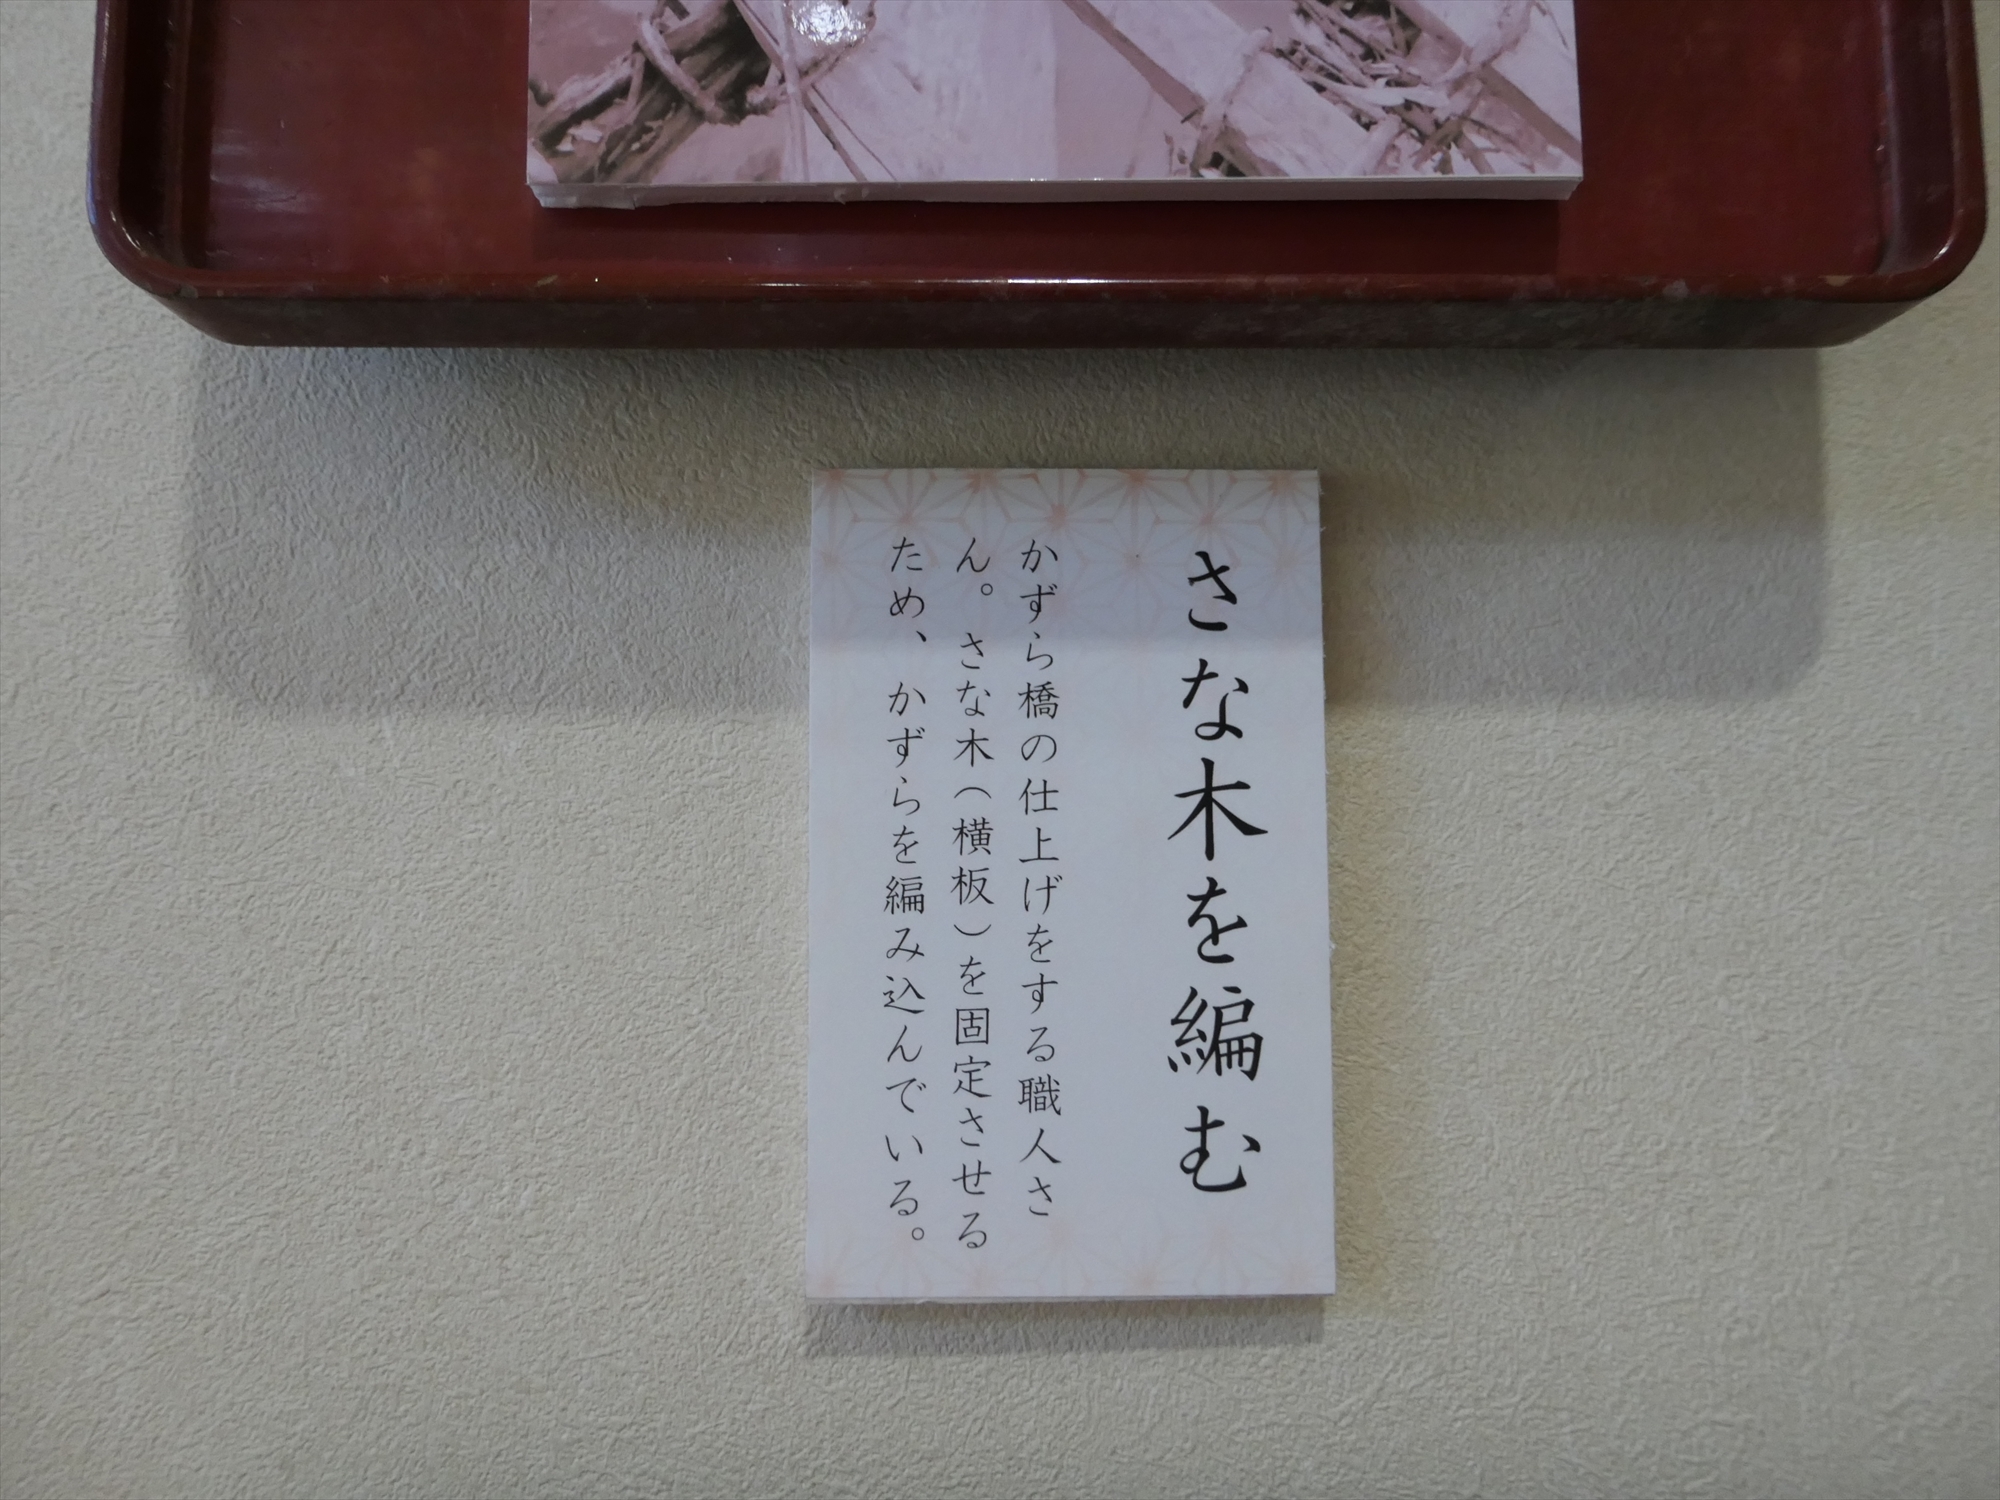 さな木を編む
かずら橋の仕上げをする職人さ
ん。さな木（横板）を固定させる
ため、かずらを編み込んでいる。